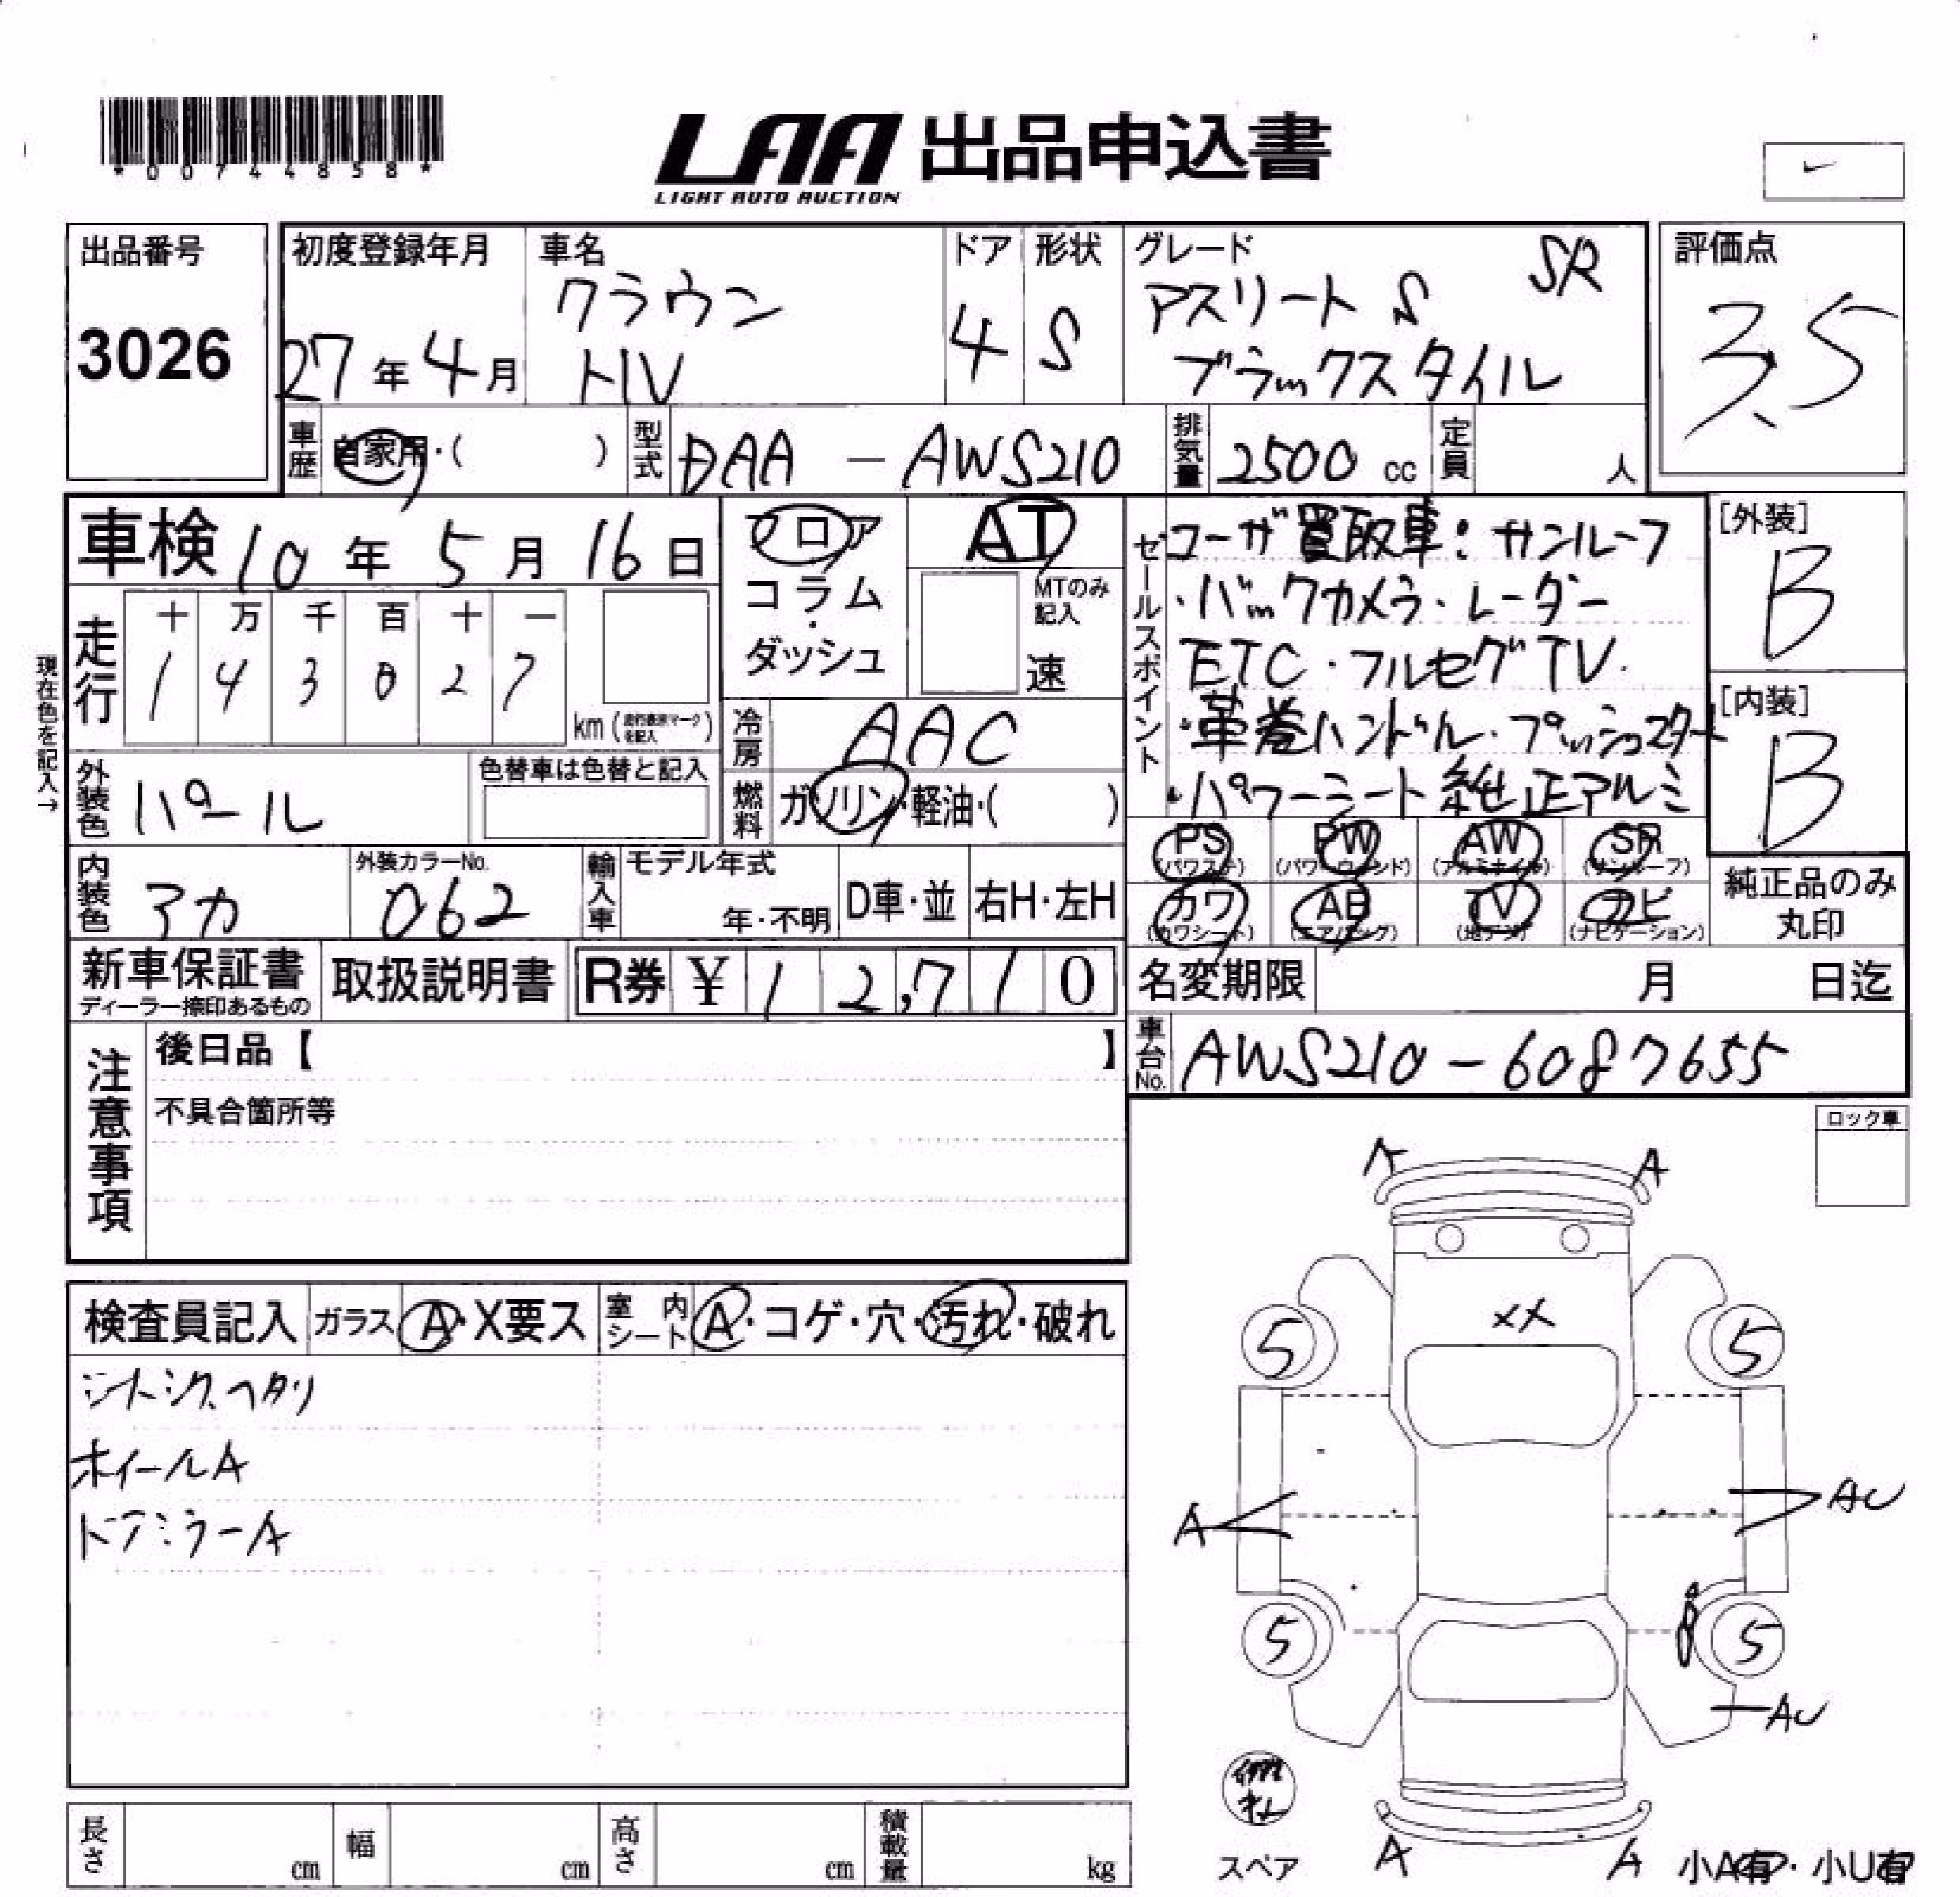 *00744858*
LAA 出品申込書
LIGHT AUTO AUCTION
出品番号
3026
初度登録年月
27年4月
車名
クラウン
HV
ドア
4
形状
S
グレード
SR
アスリート S
ブラックスタイル
評価点
3.5
車歴
自家用・( )
型式
DAA - AWS210
排気量
2500 cc
定員
人
車検 10年 5月 16日
フロア
コラム
・
ダッシュ
AT
MTのみ
記入
速
セールスポイント
ユーザ買取車:サンルーフ
・バックカメラ・レーダー
ETC・フルセグTV.
・革巻ハンドル・プッシュスタート
・パワーシート 純正アルミ
[外装]
B
[内装]
B
現在色を記入→
走行
十 万 千 百 十 一
1 4 3 0 2 7
km (走行表示マークを記入)
冷房
AAC
外装色
パール
色替車は色替と記入
燃料
ガソリン・軽油・( )
PS
(パワステ)
PW
(パワーウィンド)
AW
(アルミホイル)
SR
(サンルーフ)
カワ
(カワシート)
AB
(エアバック)
TV
(地デジ)
ナビ
(ナビゲーション)
純正品のみ
丸印
内装色
アカ
外装カラーNo.
062
輸入車
モデル年式
年・不明
D車・並
右H・左H
新車保証書
ディーラー捺印あるもの
取扱説明書
R券 ¥ 12,710
名変期限 月 日迄
車台No.
AWS210-6087655
注意事項
後日品【 】
不具合箇所等
ロック車
検査員記入
ガラス
A・X要ス
室内
シート
A・コゲ・穴・汚れ・破れ
シートシワ、ヘタリ
ホイールA
ドアミラーA
A A
XX
5 5
A AU
5 5
AU
スペア
A A
小A有・小U有
長さ cm
幅 cm
高さ cm
積載量 kg